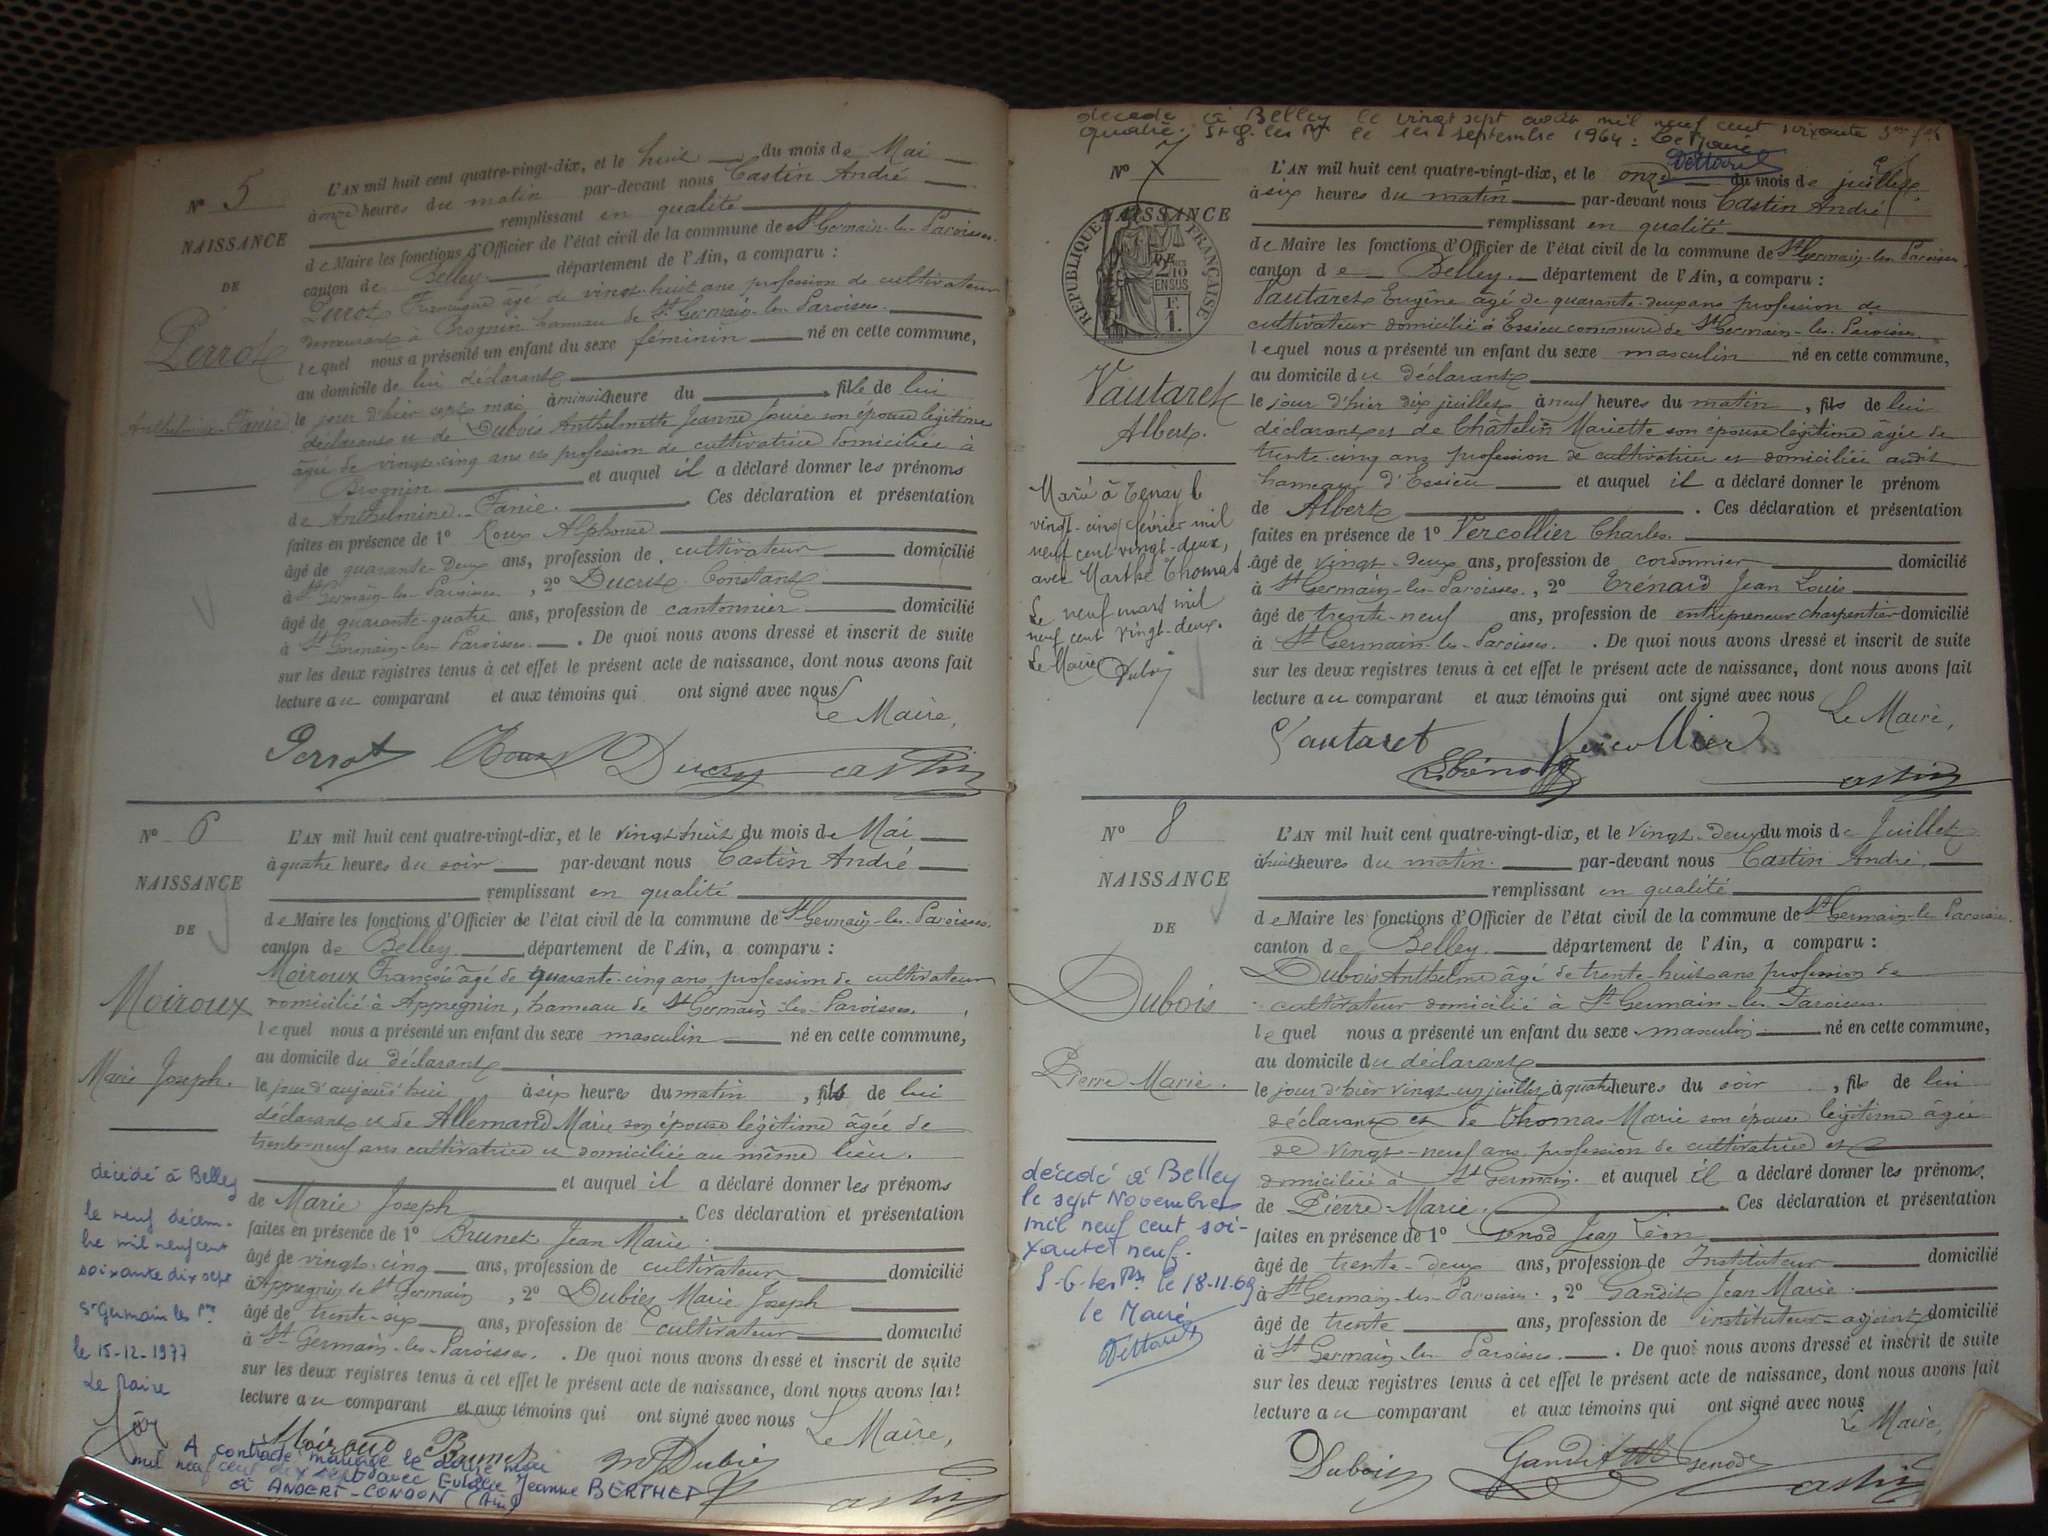 N° 5
NAISSANCE
DE
Perrot
Anthelmine-Fanie
L'AN mil huit cent quatre-vingt-dix, et le huit du mois de Mai
à onze heures du matin par-devant nous Castin André
remplissant en qualité
de Maire les fonctions d'Officier de l'état civil de la commune de St Germain-les-Paroisses
canton de Belley département de l'Ain, a comparu :
Perrot François âgé de vingt-huit ans profession de cultivateur
demeurant à Brognin hameau de St Germain-les-Paroisses
lequel nous a présenté un enfant du sexe féminin né en cette commune,
au domicile de lui déclarant
le jour d'hier sept mai à minuit heure du , fille de lui
déclarant et de Dubois Anthelmette Jeanne Louise son épouse légitime
âgée de vingt-cinq ans et profession de cultivatrice domiciliée à
Brognin et auquel il a déclaré donner les prénoms
de Anthelmine-Fanie. Ces déclaration et présentation
faites en présence de 1° Roux Alphonse
âgé de quarante-deux ans, profession de cultivateur domicilié
à St Germain-les-Paroisses, 2° Ducret Constant
âgé de quarante-quatre ans, profession de cantonnier domicilié
à St Germain-les-Paroisses. De quoi nous avons dressé et inscrit de suite
sur les deux registres tenus à cet effet le présent acte de naissance, dont nous avons fait
lecture au comparant et aux témoins qui ont signé avec nous
Le Maire,
Perrot Roux Ducret Castin
N° 6
NAISSANCE
DE
Moiroux
Marie Joseph.
L'AN mil huit cent quatre-vingt-dix, et le vingt-huit du mois de Mai
à quatre heures du soir par-devant nous Castin André
remplissant en qualité
de Maire les fonctions d'Officier de l'état civil de la commune de St Germain-les-Paroisses
canton de Belley département de l'Ain, a comparu :
Moiroux François âgé de quarante-cinq ans, profession de cultivateur
domicilié à Appregnin, hameau de St Germain-les-Paroisses,
lequel nous a présenté un enfant du sexe masculin né en cette commune,
au domicile du déclarant
le jour d'aujourd'hui à six heures du matin , fils de lui
déclarant et de Allemand Marie son épouse légitime âgée de
trente-neuf ans cultivatrice et domiciliée au même lieu.
et auquel il a déclaré donner les prénoms
de Marie Joseph. Ces déclaration et présentation
faites en présence de 1° Brunet Jean Marie
âgé de vingt-cinq ans, profession de cultivateur domicilié
à Appregnin de St Germain, 2° Dubiez Marie Joseph
âgé de trente-six ans, profession de cultivateur domicilié
à St Germain-les-Paroisses. De quoi nous avons dressé et inscrit de suite
sur les deux registres tenus à cet effet le présent acte de naissance, dont nous avons fait
lecture au comparant et aux témoins qui ont signé avec nous
Le Maire,
Moiroux Brunet Dubiez
Castin
décédé à Belley
le neuf décem-
bre mil neuf cent
soixante dix sept
St Germain les Pses
le 15-12-1977
Le Maire
A contracté mariage le douze mai
mil neuf cent dix sept avec Eulalie Jeanne BERTHET
à ANDERT-CONDON (Ain)
décédé à Belley le vingt sept août mil neuf cent soixante
quatre. St G. les P. le 1er septembre 1964 : Le Maire
N° 7
NAISSANCE
DE
REPUBLIQUE FRANÇAISE
2/10
EN SUS
Vautaret
Albert.
Marié à Tenay le
vingt-cinq février mil
neuf cent vingt-deux,
avec Marthe Thomas.
Le neuf mars mil
neuf cent vingt-deux.
Le Maire Dubois
L'AN mil huit cent quatre-vingt-dix, et le onze du mois de juillet
à six heures du matin par-devant nous Castin André
remplissant en qualité
de Maire les fonctions d'Officier de l'état civil de la commune de St Germain-les-Paroisses
canton de Belley. département de l'Ain, a comparu :
Vautaret Eugène âgé de quarante-deux ans profession de
cultivateur domicilié à Essieu commune de St Germain-les-Paroisses
lequel nous a présenté un enfant du sexe masculin né en cette commune,
au domicile du déclarant
le jour d'hier dix juillet à neuf heures du matin , fils de lui
déclarant et de Châtelin Mariette son épouse légitime âgée de
trente-cinq ans profession de cultivatrice et domiciliée audit
hameau d'Essieu et auquel il a déclaré donner le prénom
de Albert. Ces déclaration et présentation
faites en présence de 1° Vercollier Charles.
âgé de vingt-deux ans, profession de cordonnier domicilié
à St Germain-les-Paroisses, 2° Trénard Jean Louis
âgé de trente-neuf ans, profession de entrepreneur charpentier domicilié
à St Germain-les-Paroisses. De quoi nous avons dressé et inscrit de suite
sur les deux registres tenus à cet effet le présent acte de naissance, dont nous avons fait
lecture au comparant et aux témoins qui ont signé avec nous
Le Maire,
Vautaret Vercollier
Trénard Castin
N° 8
NAISSANCE
DE
Dubois
Pierre Marie.
décédé à Belley
le sept Novembre
mil neuf cent soi-
xante neuf.
S-G-les Pses le 18-11-69
le Maire
L'AN mil huit cent quatre-vingt-dix, et le vingt-deux du mois de Juillet
à huit heures du matin. par-devant nous Castin André.
remplissant en qualité
de Maire les fonctions d'Officier de l'état civil de la commune de St Germain-les-Paroisses.
canton de Belley. département de l'Ain, a comparu :
Dubois Anthelme âgé de trente-huit ans profession de
cultivateur domicilié à St Germain-les-Paroisses.
lequel nous a présenté un enfant du sexe masculin né en cette commune,
au domicile du déclarant
le jour d'hier vingt-un juillet à quatre heures du soir , fils de lui
déclarant et de Thomas Marie son épouse légitime âgée
de vingt-neuf ans profession de cultivatrice et
domiciliée à St Germain. et auquel il a déclaré donner les prénoms.
de Pierre-Marie. Ces déclaration et présentation
faites en présence de 1° Genod Jean Léon
âgé de trente-deux ans, profession de Instituteur domicilié
à St Germain-les-Paroisses., 2° Gandit Jean Marie.
âgé de trente ans, profession de instituteur-adjoint domicilié
à St Germain-les-Paroisses. De quoi nous avons dressé et inscrit de suite
sur les deux registres tenus à cet effet le présent acte de naissance, dont nous avons fait
lecture au comparant et aux témoins qui ont signé avec nous
Le Maire,
Dubois Gandit Genod Castin